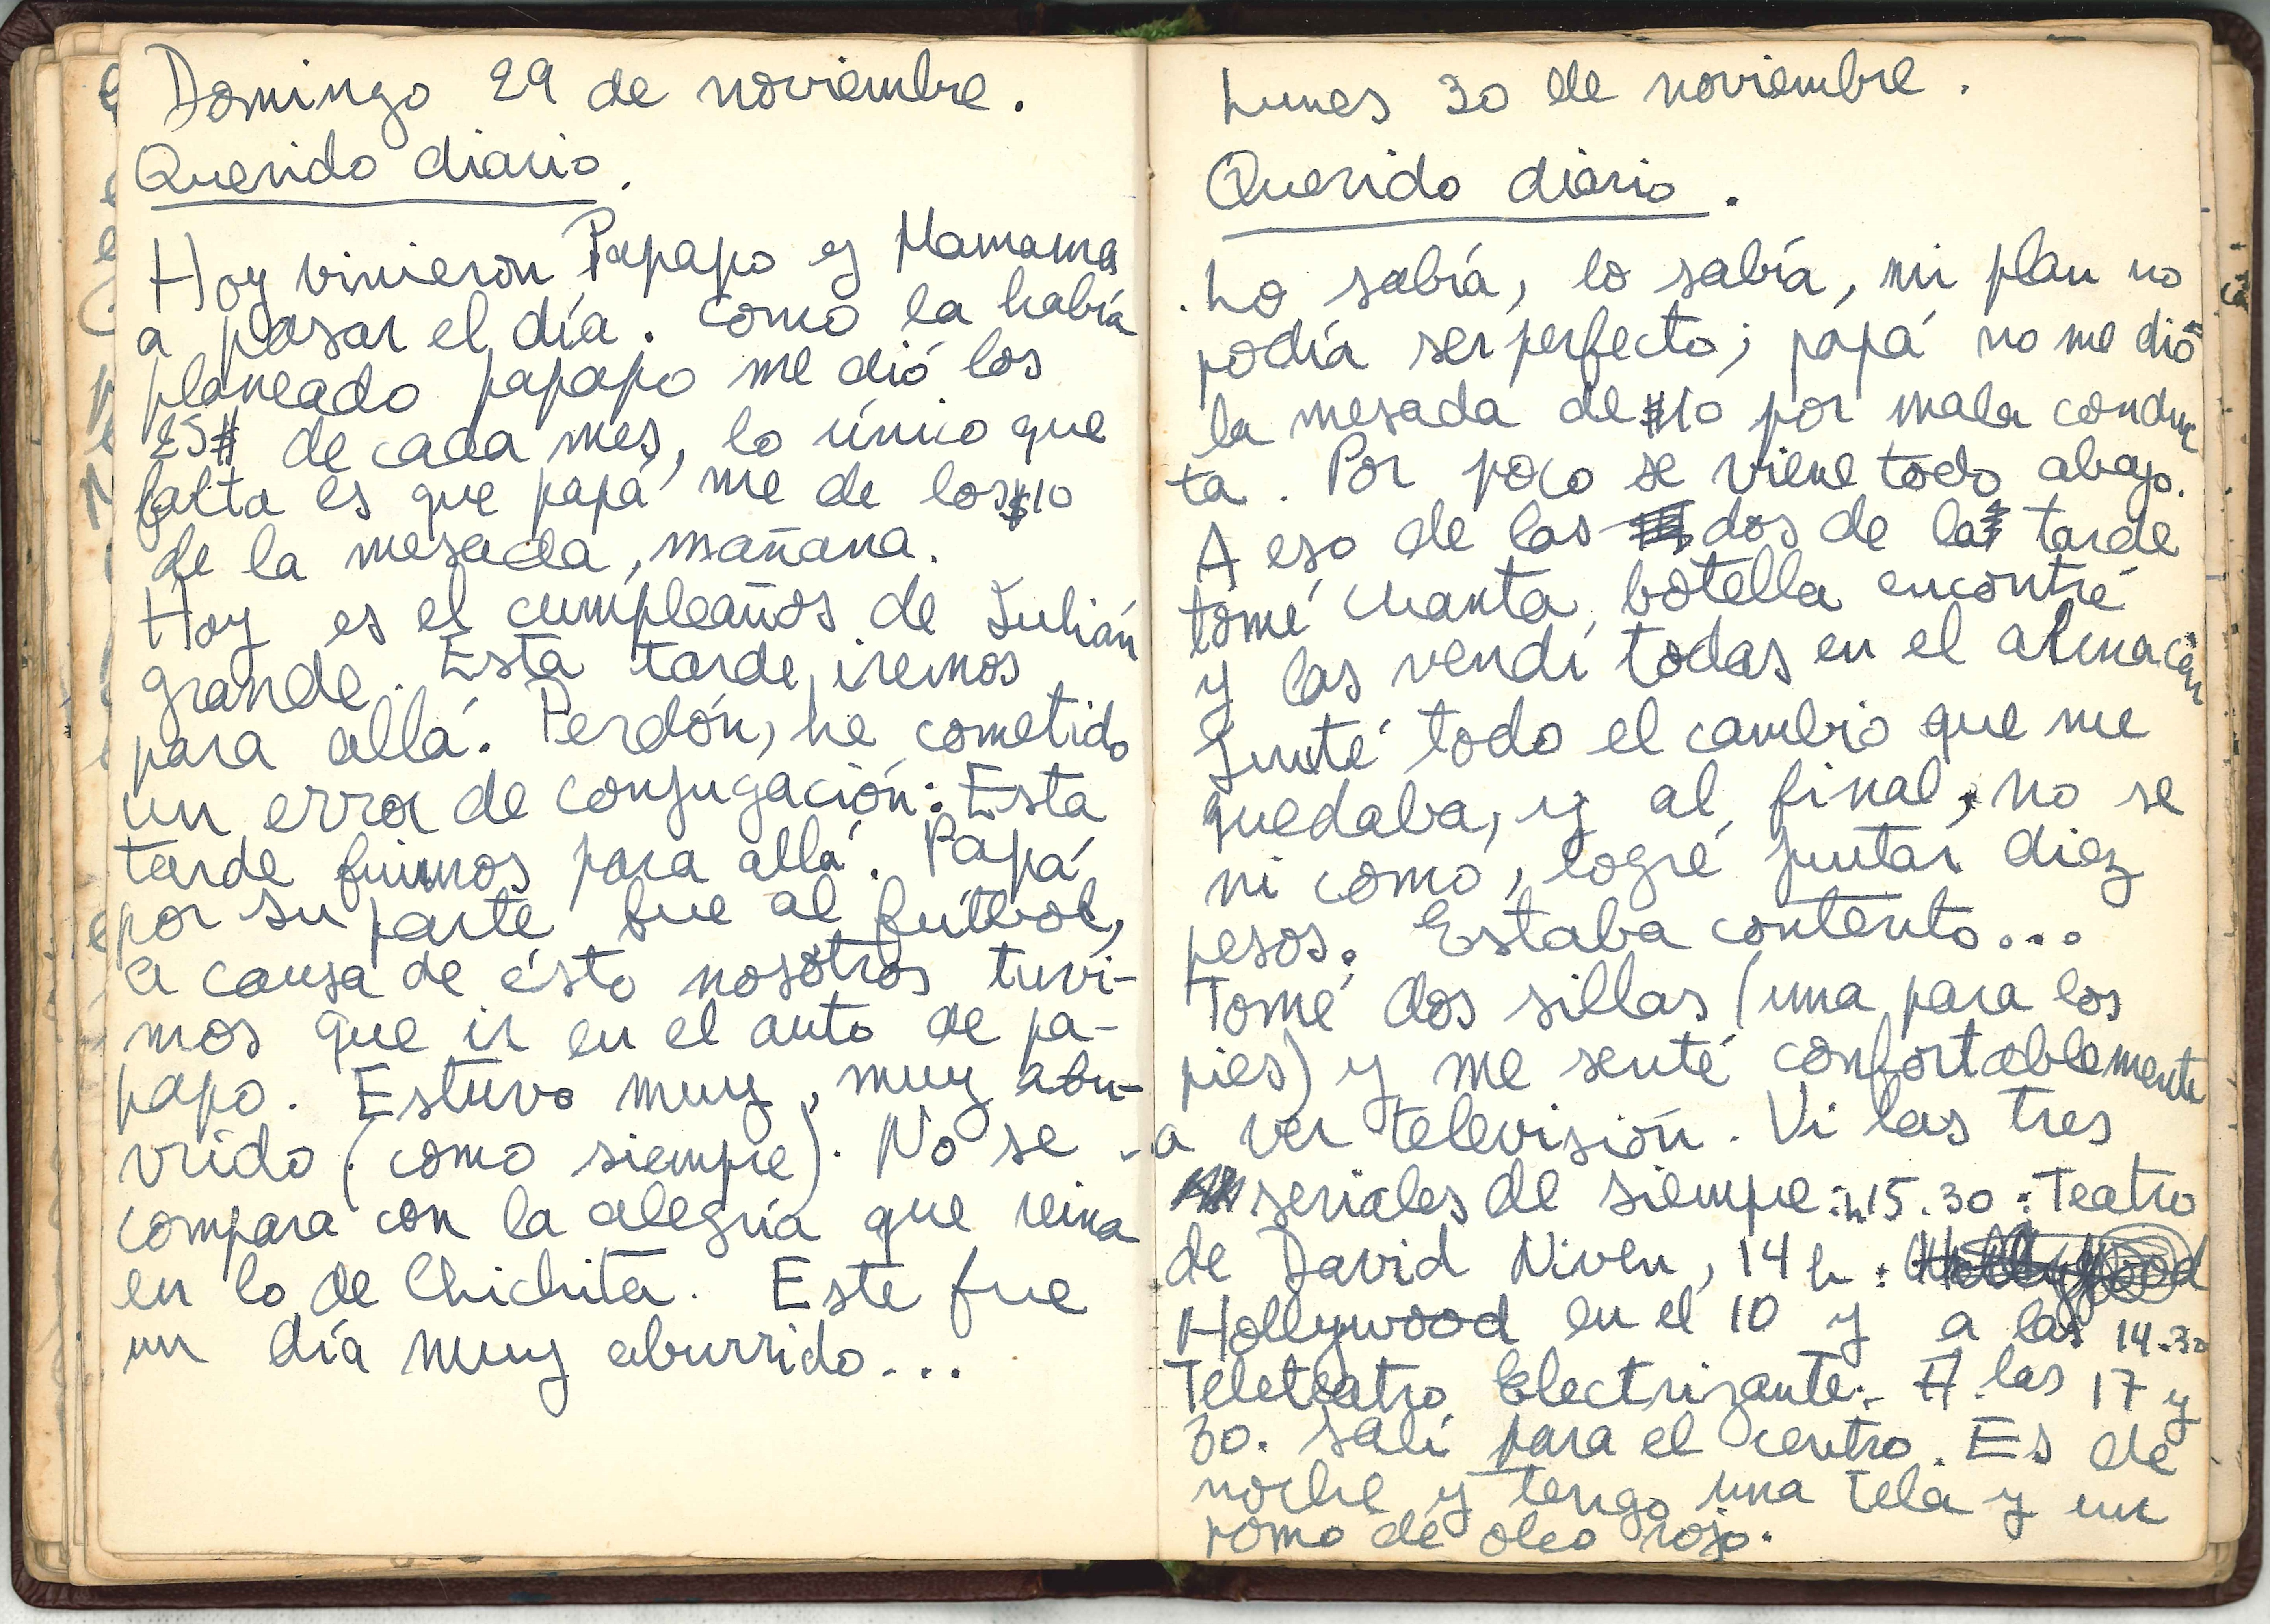 Domingo 29 de noviembre.
Querido diario.
Hoy vinieron Papapo y Mamama
a pasar el día. Como la había
planeado papapo me dió los
25$ de cada mes, lo único que
falta es que papá me de los $10
de la mesada, mañana.
Hoy es el cumpleaños de Julián
grande. Esta tarde iremos
para allá. Perdón, he cometido
un error de conjugación: Esta
tarde fuimos para allá. Papá
por su parte fue al fútbol,
a causa de ésto nosotros tuvi-
mos que ir en el auto de pa-
papo. Estuvo muy, muy abu-
vrido (como siempre). No se
compara con la alegría que reina
en lo de Chichita. Este fue
un día muy aburrido...
Lunes 30 de noviembre.
Querido diario.
Lo sabía, lo sabía, mi plan no
podía ser perfecto; papá no me dió
la mesada de $10 por mala conduc
ta. Por poco se viene todo abajo.
A eso de las dos de la tarde
tomé cuanta botella encontré
y las vendí todas en el almacén
Junté todo el cambio que me
quedaba, y al final, no se
ni como, logré juntar diez
pesos. Estaba contento...
Tomé dos sillas (una para los
pies) y me senté confortablemente
a ver televisión. Vi las tres
seriales de siempre: 15.30: Teatro
de David Niven, 14 h: Hollywood
Hollywood en el 10 y a las 14.30
Teleteatro Electrizante. A las 17 y
30. Salí para el centro. Es de
noche y tengo una tela y un
pomo de oleo rojo.